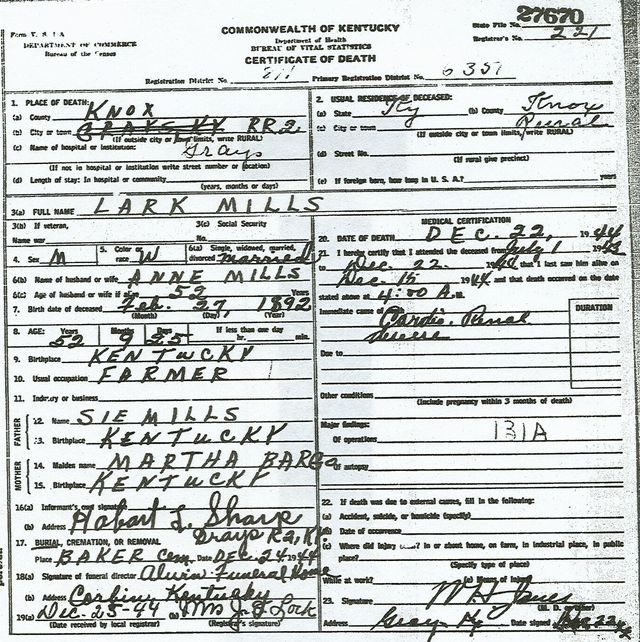 27670
Form V. S. 1-A
DEPARTMENT OF COMMERCE
Bureau of the Census
COMMONWEALTH OF KENTUCKY
Department of Health
BUREAU OF VITAL STATISTICS
CERTIFICATE OF DEATH
State File No.
Registrar's No. 221
Registration District No. 211 Primary Registration District No. 6351
1. PLACE OF DEATH:
(a) County KNOX
(b) City or town GRAYS, KY RR2
(If outside city or town limits, write RURAL)
(c) Name of hospital or institution: Grays
(If not in hospital or institution write street number or location)
(d) Length of stay: In hospital or community
(years, months or days)
2. USUAL RESIDENCE OF DECEASED:
(a) State Ky (b) County Knox
(c) City or town Rural
(If outside city or town limits, write RURAL)
(d) Street No.
(If rural give precinct)
(e) If foreign born, how long in U. S. A.? years
3(a) FULL NAME LARK MILLS
3(b) If veteran, Name war
3(c) Social Security No.
4. Sex M 5. Color or race W 6(a) Single, widowed, married, divorced married
6(b) Name of husband or wife ANNE MILLS
6(c) Age of husband or wife if alive 52 years
7. Birth date of deceased Feb. 27, 1892
(Month) (Day) (Year)
8. AGE: Years Months Days If less than one day
52 9 25 hr. min.
9. Birthplace KENTUCKY
10. Usual occupation FARMER
11. Industry or business
FATHER
12. Name SIE MILLS
13. Birthplace KENTUCKY
MOTHER
14. Maiden name MARTHA BARGO
15. Birthplace KENTUCKY
16(a) Informant's own signature Hobart L. Sharp
(b) Address Grays R2, Ky.
17. BURIAL, CREMATION, OR REMOVAL
Place BAKER Cem. Date DEC. 24 1944
18(a) Signature of funeral director Alvin Funeral Home
(b) Address Corbin Kentucky
19(a) Dec-25-44 Mrs J. S. Lock
(Date received by local registrar) (Registrar's signature)
MEDICAL CERTIFICATION
20. DATE OF DEATH DEC. 22, 1944
21. I hereby certify that I attended the deceased from July 1 1943
to Dec. 22 1944 that I last saw him alive on
Dec. 15 1944 and that death occurred on the date
stated above at 4:00 A.m.
DURATION
Immediate cause of Cardio-Renal
disease
Due to
Other conditions
(Include pregnancy within 3 months of death)
Major findings: 131A
Of operations
Of autopsy
22. If death was due to external causes, fill in the following:
(a) Accident, suicide, or homicide (specify)
(b) Date of occurrence
(c) Where did injury occur? In or about home, on farm, in industrial place, in public place?
(Specify type of place)
While at work? (e) Means of injury
23. Signature W H Jones
(M. D. or other)
Address Gray Ky Date signed Dec 22